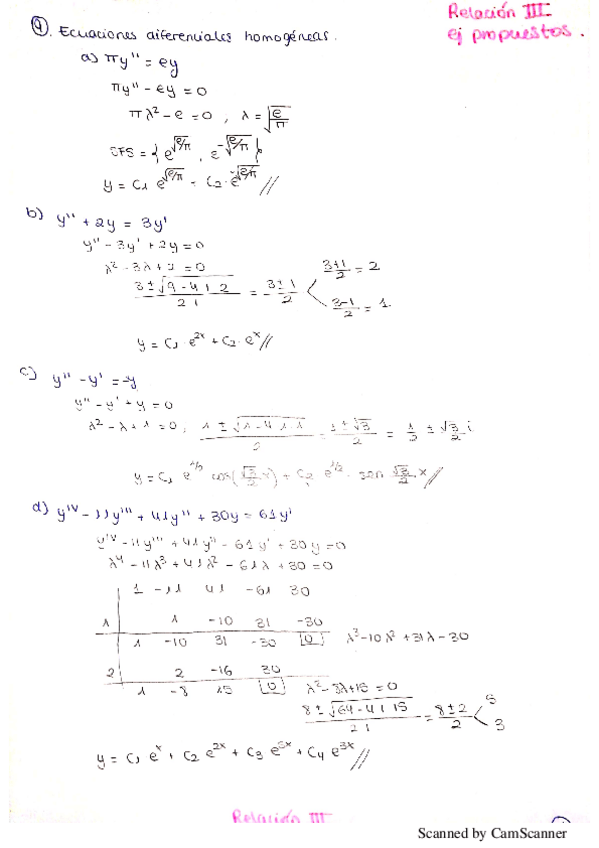 Relación III
ej propuestos.
④. Ecuaciones diferenciales homogéneas.
a) πy'' = ey
πy'' - ey = 0
πλ² - e = 0, λ = √(e/π)
y = C₁ e^√(e/π) - C₂·e^-√(e/π) //
b) y'' + 2y = 3y'
y'' - 3y' + 2y = 0
λ² - 3λ + 2 = 0
(3 ± √(9 - 4·1·2))/(2·1) = (3 ± 1)/2 < (3+1)/2 = 2
(3-1)/2 = 1
y = C₁·e^2x + C₂·e^x //
c) y'' - y' = -y
y'' - y' + y = 0
λ² - λ + 1 = 0; (1 ± √(1 - 4·1·1))/2 = (1 ± √3)/2 = 1/2 ± √3/2 i
y = C₁ e^1/2 cos(√3/2 x) + C₂ e^1/2 · sen √3/2 x //
d) y^IV - 11y''' + 41y'' + 30y = 61y'
y^IV - 11y''' + 41y'' - 61y' + 30y = 0
λ⁴ - 11λ³ + 41λ² - 61λ + 30 = 0
1 -11 41 -61 30
1 1 -10 31 -30
1 -10 31 -30 0 λ³ - 10λ² + 31λ - 30
2 2 -16 30
1 -8 15 0 λ² - 8λ + 15 = 0
(8 ± √(64 - 4·1·15))/(2·1) = (8 ± 2)/2 < 5
3
y = C₁ e^x + C₂ e^2x + C₃ e^5x + C₄ e^3x //
Relación III
Scanned by CamScanner